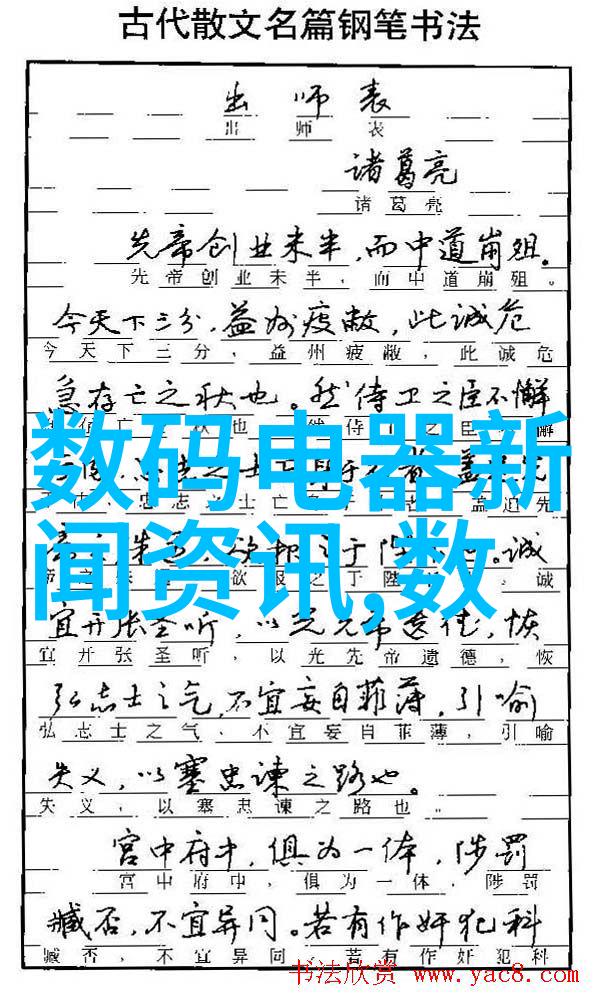 古代散文名篇钢笔书法
出师表
出师表
诸葛亮
诸葛亮
先帝创业未半,而中道崩殂。
先帝创业未半,而中道崩殂。
今天下三分,益州疲敝,此诚危
今天下三分,益州疲敝,此诚危
急存亡之秋也。然侍卫之臣不懈
数码电器新
闻资讯,数
诚
诚
宜开张圣听,以光先帝遗德,恢
宜开张圣听,以光先帝遗德,恢
弘志士之气,不宜妄自菲薄,引喻
弘志士之气,不宜妄自菲薄,引喻
失义,以塞忠谏之路也。
失义,以塞忠谏之路也。
宫中府中,俱为一体,陟罚
宫中府中,俱为一体,陟罚
臧否,不宜异同。若有作奸犯科
臧否,不宜异同。若有作奸犯科
书法欣赏 www.yac8.com